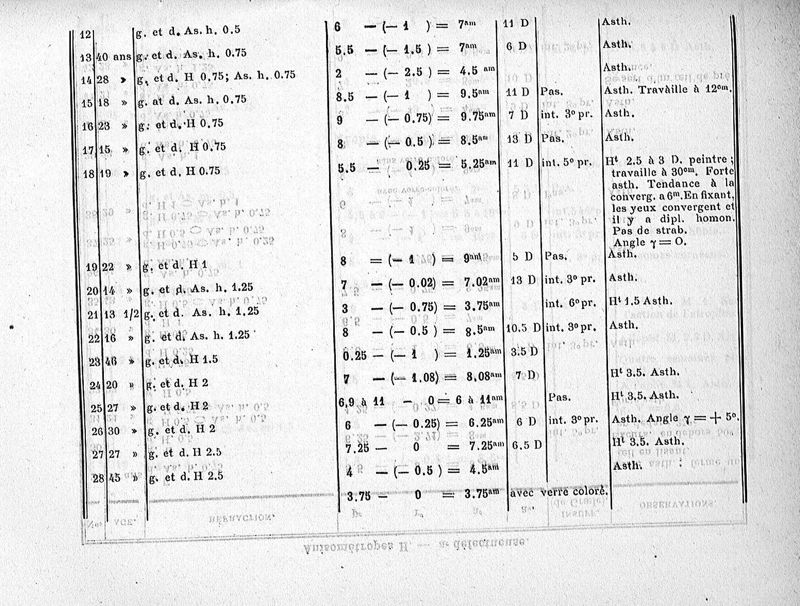 12 g. et d. As. h. 0.5 6 — (— 1 ) = 7am 11 D Asth.
13 40 ans g. et d. As. h. 0.75 5.5 — (— 1.5 ) = 7am 6 D Asth.
14 28 » g. et d. H 0,75; As. h. 0.75 2 — (— 2.5 ) = 4.5 am Asth.
15 18 » g. at d. As. h. 0.75 8.5 — (— 1 ) = 9.5am 11 D Pas. Asth. Travaille à 12cm.
16 23 » g. et d. H 0.75 9 — (— 0.75) = 9.75am 7 D int. 3º pr. Asth.
17 15 » g. et d. H 0.75 8 — (— 0.5 ) = 8.5am 13 D Pas. Asth.
18 19 » g. et d, H 0.75 5.5 — 0.25 = 5.25am 11 D int. 5º pr. Ht 2.5 à 3 D. peintre ;
travaille à 30cm. Forte
asth. Tendance à la
converg. a 6m. En fixant,
les yeux convergent et
il y a dipl. homon.
Pas de strab.
Angle γ = O.
19 22 » g. et d. H 1 8 = (— 1 ) = 9am 5 D Pas. Asth.
20 14 » g. et d. As. h. 1.25 7 — (— 0.02) = 7.02am 13 D int. 3º pr. Asth.
21 13 1/2 g. et d. As. h. 1.25 3 — (— 0.75) = 3.75am int. 6º pr. Ht 1.5 Asth.
22 16 » g. et d. As. h. 1.25 8 — (— 0.5 ) = 8.5am 10.5 D int. 3º pr. Asth.
23 46 » g. et d. H 1.5 0.25 — (— 1 ) = 1.25am 3.5 D
24 20 » g. et d. H 2 7 — (— 1.08) = 8.08am 7 D Ht 3.5. Asth.
25 27 » g. et d. H 2 6,9 à 11 — 0 = 6 à 11am Pas. Ht 3.5. Asth.
26 30 » g. et d. H 2 6 — (— 0.25) = 6.25am 6 D int. 3º pr. Asth. Angle γ = + 5º.
27 27 » g. et d. H 2.5 7.25 — 0 = 7.25am 6.5 D Ht 3.5. Asth.
28 45 » g. et d. H 2.5 4 — (— 0.5 ) = 4.5am Asth.
3.75 — 0 = 3.75am avec verre coloré.